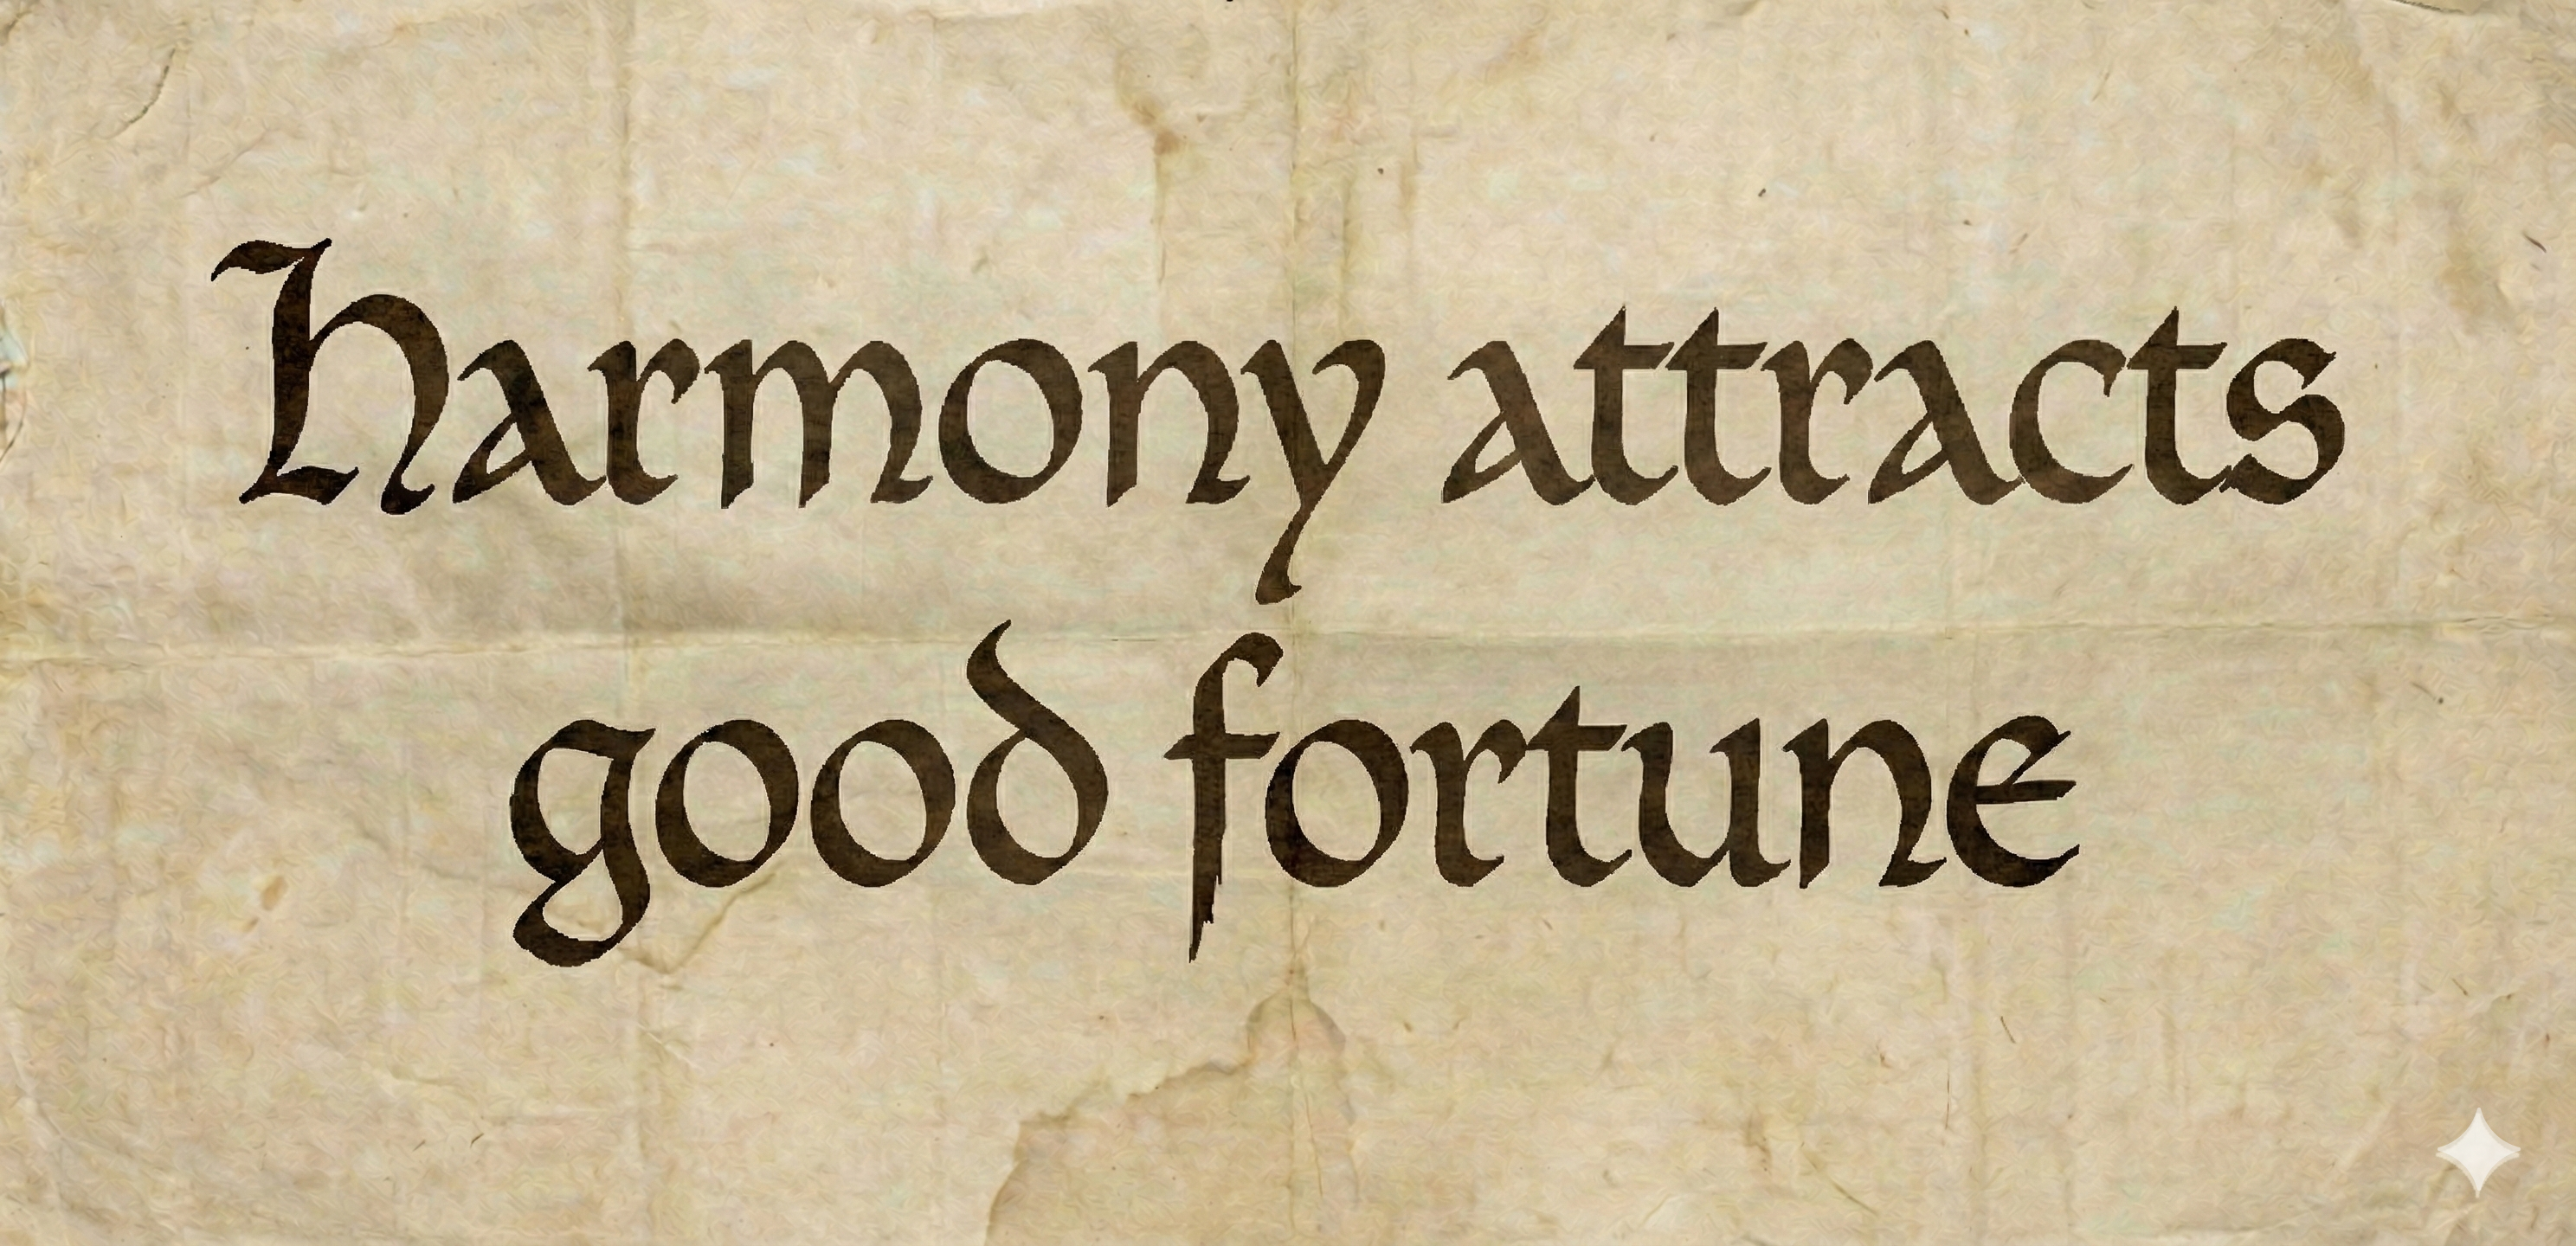 Harmony attracts
good fortune